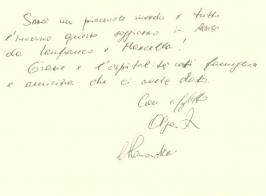 Sarà un piacevole ricordo x tutto
l'inverno questo soggiorno in
da Lanfranco e Marcella!
Grazie x l'ospitalità così famigliare
e amicizia che ci avete dato.
Con affetto